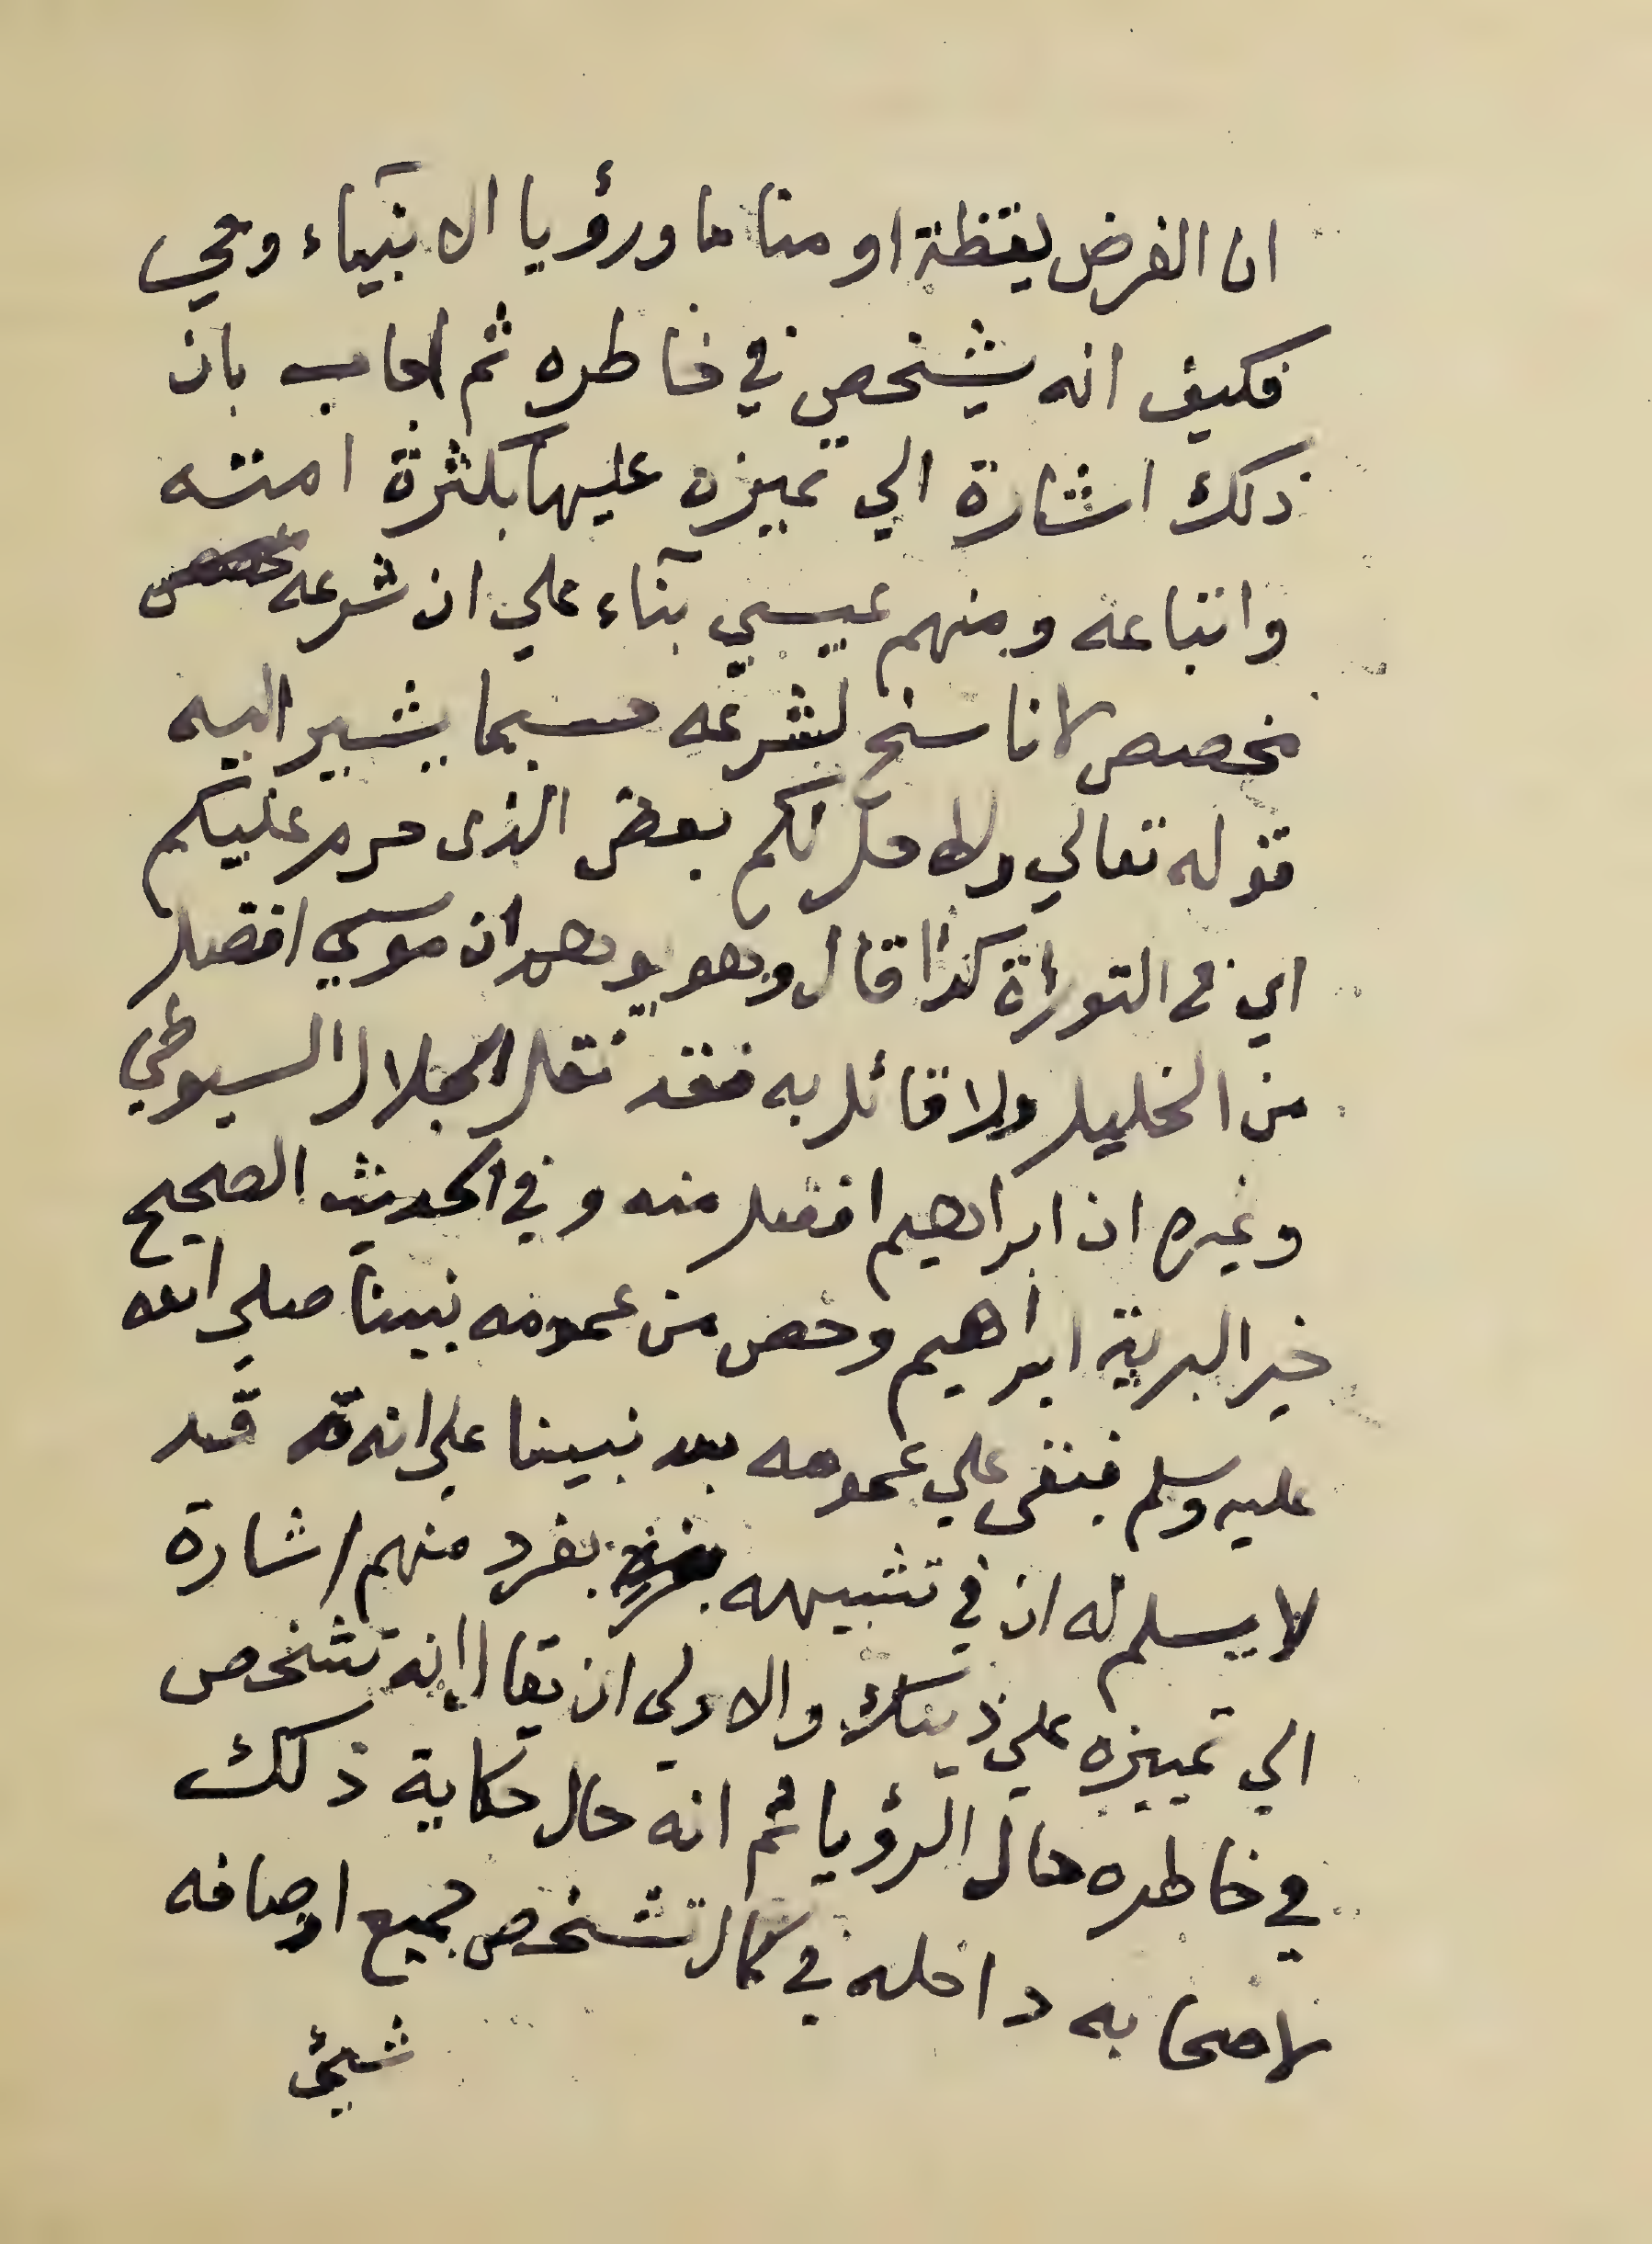 ان الفرض يقظة او مناما ورؤيا الانبياء وحي
فكيف انه يشخص في خاطره ثم اجاب بان
ذلك اشارة الي تميزه عليها بكثرة امته
واتباعه ومنهم عيسي بناء علي ان شرعه
مخصص لا ناسخ لشرعه حسبما يشير اليه
قوله تعالي ولاحل لكم بعض الذى حرم عليكم
اي في التوراة كذا قال وهو يوهم ان موسي افضل
من الخليل ولا قائل به فقد نقل الجلال السيوطي
وغيره ان ابراهيم افضل منه وفي الحديث الصحيح
خير البرية ابراهيم وخص من عمومه نبينا صلي الله
عليه وسلم فبقى علي عمومه بعد نبينا علي انه قد
لا يسلم له ان في تشبيهه بفرد منهم اشارة
الي تمييزه علي ذينك والاولي ان يقال انه تشخص
في خاطره حال الرؤيا ثم انه حال حكاية ذلك
لاصحابه داخله في كمال تشخص جميع اوصافه
شيئ